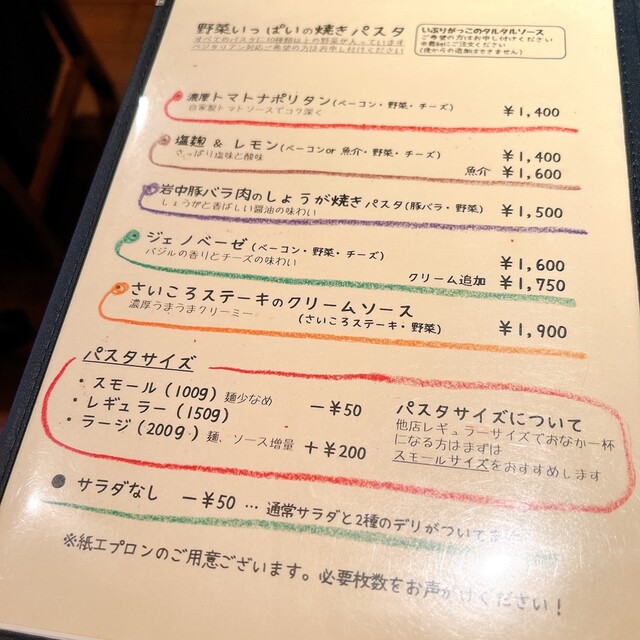 野菜いっぱいの焼きパスタ
すべてのパスタに10種類以上の野菜が入っています
ベジタリアン対応ご希望の方はお申し付けください
いぶりがっこのタルタルソース
ご希望の方はお申し付けください
※最初にご注文ください
(後からの追加はできません)
濃厚トマトナポリタン(ベーコン・野菜・チーズ) ¥1,400
自家製トマトソースでコク深く
塩麹 & レモン(ベーコンor 魚介・野菜・チーズ) ¥1,400
さっぱり塩味と酸味
魚介 ¥1,600
岩中豚バラ肉のしょうが焼きパスタ(豚バラ・野菜) ¥1,500
しょうがと香ばしい醤油の味わい
ジェノベーゼ(ベーコン・野菜・チーズ) ¥1,600
バジルの香りとチーズの味わい
クリーム追加 ¥1,750
さいころステーキのクリームソース
濃厚うまうまクリーミー (さいころステーキ・野菜) ¥1,900
パスタサイズ
・スモール(100g) 麺少なめ －¥50
・レギュラー(150g)
・ラージ(200g) 麺、ソース増量 ＋¥200
パスタサイズについて
他店レギュラーサイズでおなか一杯
になる方はまずは
スモールサイズをおすすめします
● サラダなし －¥50 … 通常サラダと2種のデリがついてま
※紙エプロンのご用意ございます。必要枚数をお声がけください！